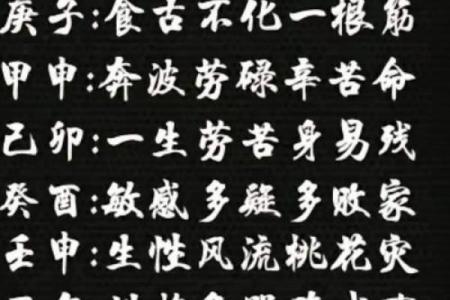 庚子:食古不化一根筋
甲申:奔波劳碌辛苦命
己卯:一生劳苦身易残
癸酉:敏感多疑多败家
壬申:生性风流桃花灾